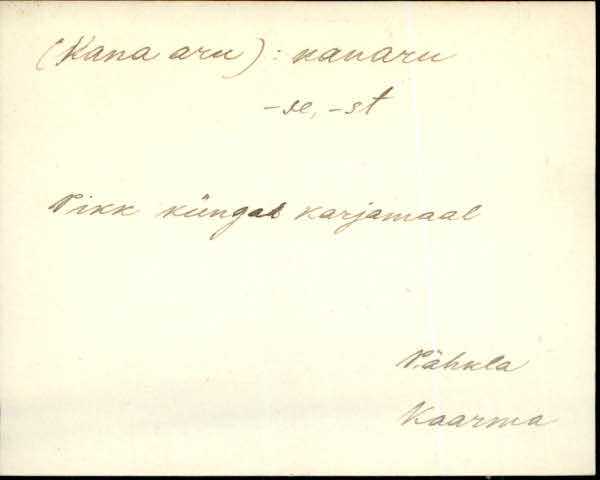 (Kana aru): kanaru
-se, -st
Pikk küngas karjamaal
Pähkla
Kaarma